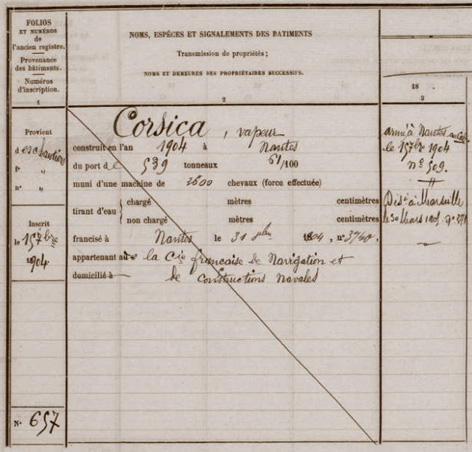 FOLIOS
ET NUMÉROS
de
l'ancien registre.
Provenance
des bâtiments.
Numéros
d'inscription.
1
NOMS, ESPÈCES ET SIGNALEMENTS DES BATIMENTS
Transmission de propriétés;
NOMS ET DEMEURES DES PROPRIÉTAIRES SUCCESSIFS.
2
18
3
Provient
d
f°
n°
Inscrit
le 15 7bre
1904
N° 657
Corsica, vapeur
construit en l'an 1904 à Nantes
du port de 539 tonneaux 61/100
muni d'une machine de 2600 chevaux (force effectuée)
tirant d'eau chargé mètres centimètres
non chargé mètres centimètres
francisé à Nantes le 31 1904, n° 3740.
appartenant à la Cie française de Navigation et
domicilié à de Constructions navales
armé à Nantes
le 15 7bre 1904
n° 509.
Dés. à Marseille
le 30 Mars 1905.